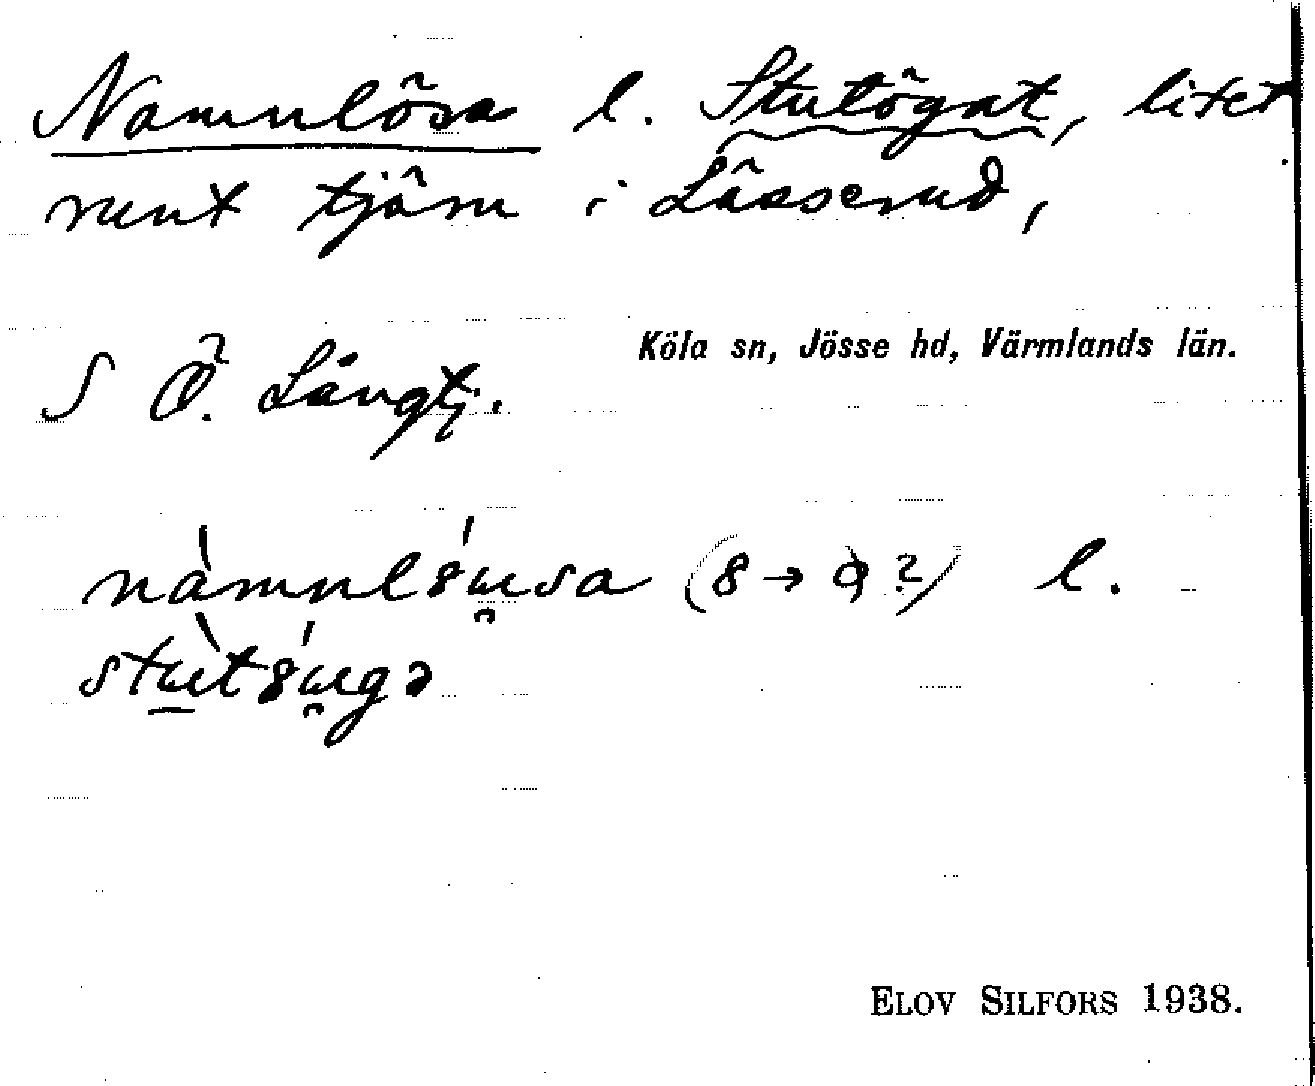 Namnlösa l. Stutögat, litet
runt tjärn i Lässerud,
Köla sn, Jösse hd, Värmlands län.
S Ö. Långtj.
nàmnl8́u̯sa (8 → ϕ ?) l.
stù̠t8́u̯gə
ELOV SILFORS 1938.